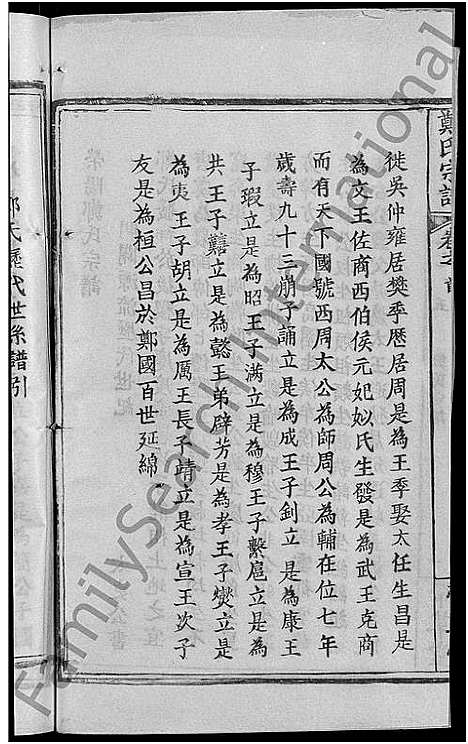 鄭氏宗譜
卷之首
徙吳仲雍居樊季歷居周是為王季娶太任生昌是
為文王佐商西伯侯元妃姒氏生發是為武王克商
而有天下國號西周太公為師周公為輔在位七年
歲壽九十三崩子誦立是為成王子釗立是為康王
子瑕立是為昭王子满立是為穆王子繫扈立是為
共王子囏立是為懿王弟辟芳是為孝王子燮立是
為夷王子胡立是為厲王長子靖立是為宣王次子
友是為桓公昌於鄭國百世延綿
鄭氏歷代世系譜引
FamilySearch International